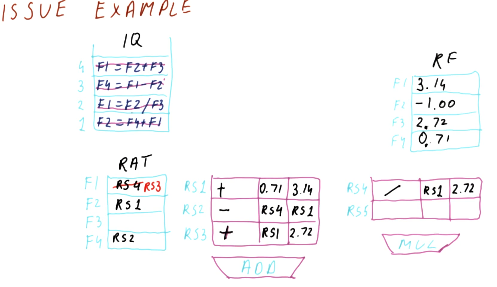 ISSUE EXAMPLE
IQ
4 F1 = F2 + F3
3 F4 = F1 - F2
2 F1 = F2 / F3
1 F2 = F4 + F1
RF
F1 3.14
F2 -1.00
F3 2.72
F4 0.71
RAT
F1 RS4 RS3
F2 RS1
F3
F4 RS2
RS1 + 0.71 3.14
RS2 - RS4 RS1
RS3 + RS1 2.72
ADD
RS4 / RS1 2.72
RS5
MUL